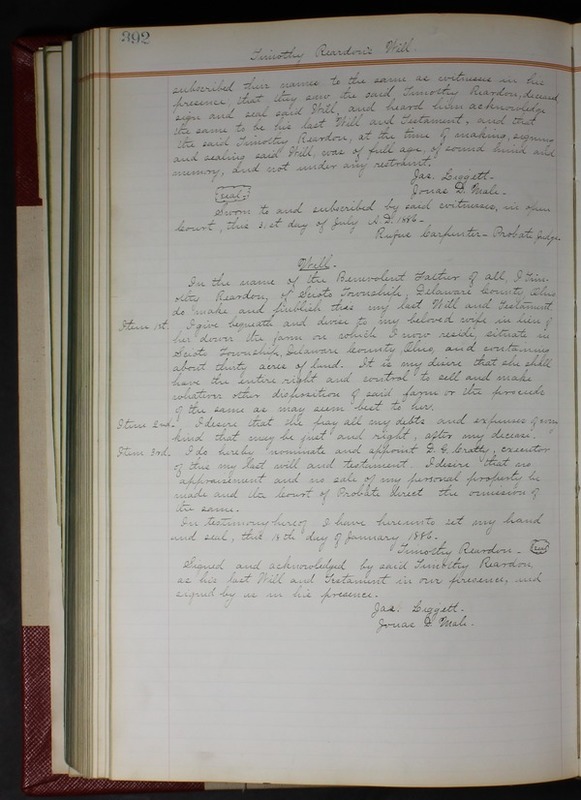 392
Timothy Reardon's Will.
subscribed their names to the same as witnesses in his
presence, that they saw the said Timothy Reardon, deceased
sign and seal said Will, and heard him acknowledge
the same to be his last Will and Testament, and that
the said Timothy Reardon, at the time of making, signing
and sealing said Will, was of full age, of sound mind and
memory, and not under any restraint.
Jas. Liggett-
Jonas D. Male-
seal
Sworn to and subscribed by said witnesses, in open
Court, this 31st day of July A.D. 1886-
Rufus Carpenter- Probate Judge.
Will-
In the name of the Benevolent Father of all, I Tim-
othy Reardon, of Scioto Township, Delaware County Ohio
do make and publish this my last Will and Testament.
Item 1st. I give bequeath and devise to my beloved wife in lieu of
her dower the farm on which I now reside situate in
Scioto Township, Delaware County, Ohio, and containing
about thirty acres of land. It is my desire that she shall
have the entire right and control to sell and make
whatever other disposition of said farm or the proceeds
of the same as may seem best to her.
Item 2nd- I desire that she pay all my debts and expenses of every
kind that may be just and right, after my decease.
Item 3rd. I do hereby nominate and appoint D. G. Cratty, executor
of this my last will and testament. I desire that no
appraisement and no sale of my personal property be
made and the Court of Probate direct the omission of
the same.
In testimony hereof, I have hereunto set my hand
and seal, this 18th day of January 1886.
Timothy Reardon- seal
Signed and acknowledged by said Timothy Reardon
as his last Will and Testament in our presence, and
signed by us in his presence.
Jas. Liggett.
Jonas D. Male.